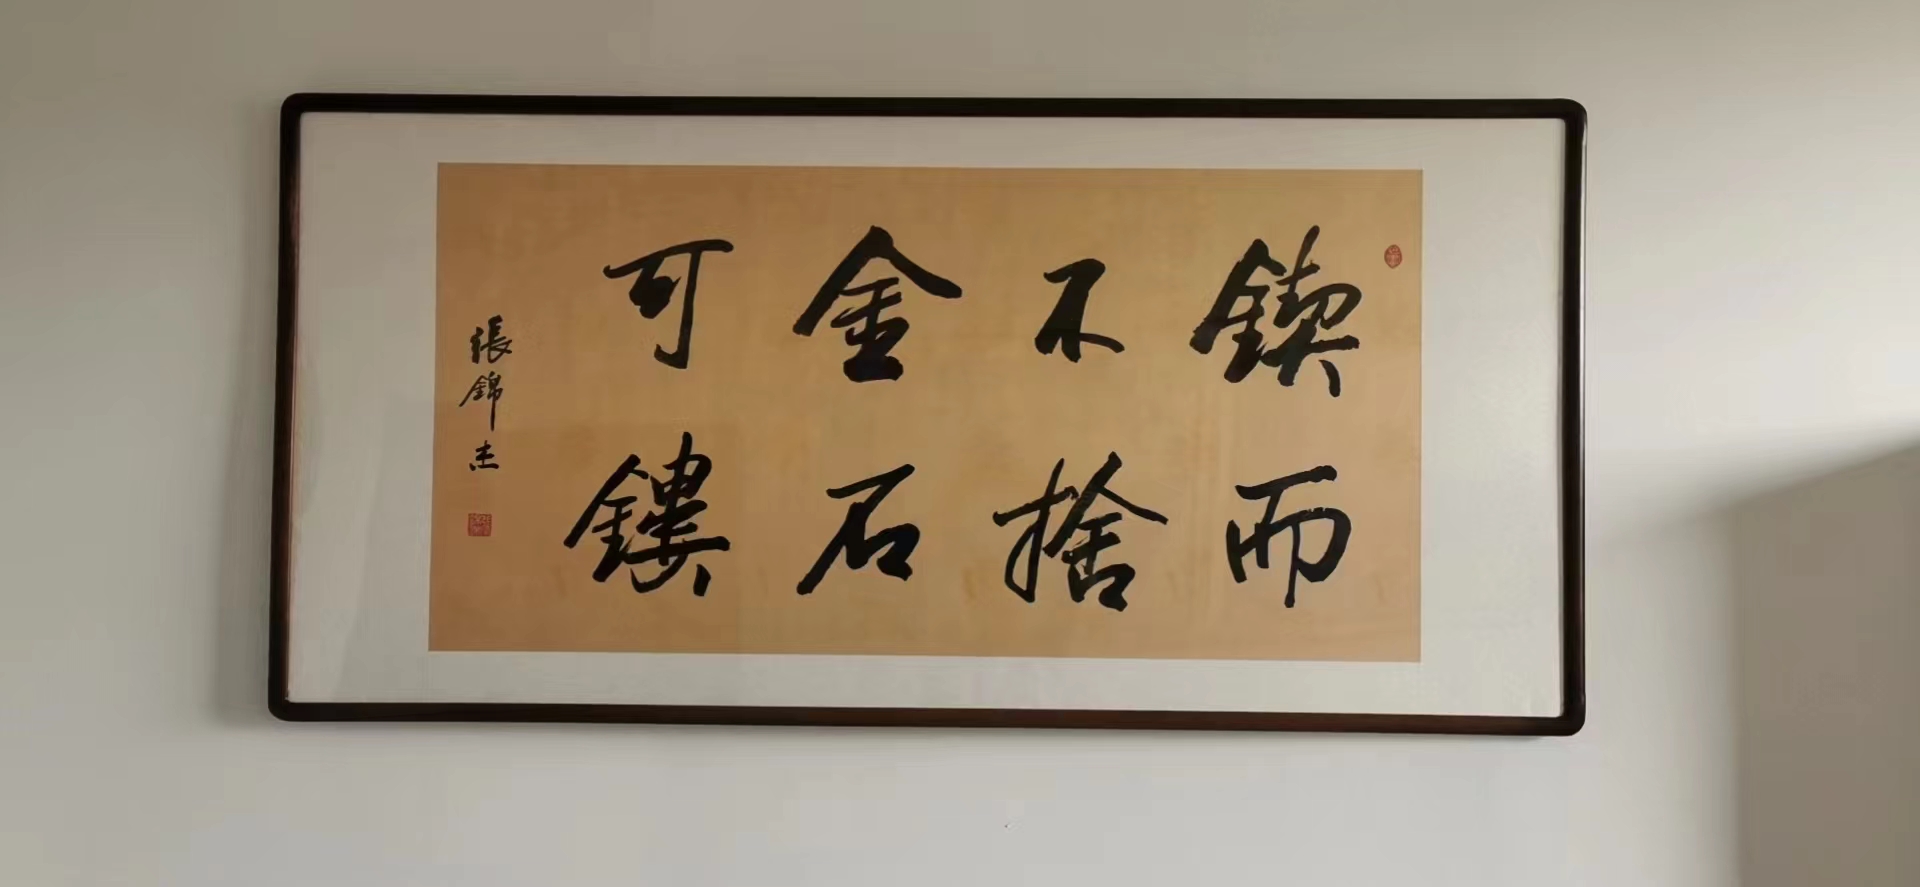 鍥而
不捨
金石
可鏤
張錦杰